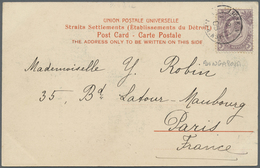 UNION POSTALE UNIVERSELLE
Straits Settlements (Établissements du Détroit)
Post Card - Carte Postale
THE ADDRESS ONLY TO BE WRITTEN ON THIS SIDE
Mademoiselle Y. Robin
35, Bd Latour-Maubourg
Paris
France